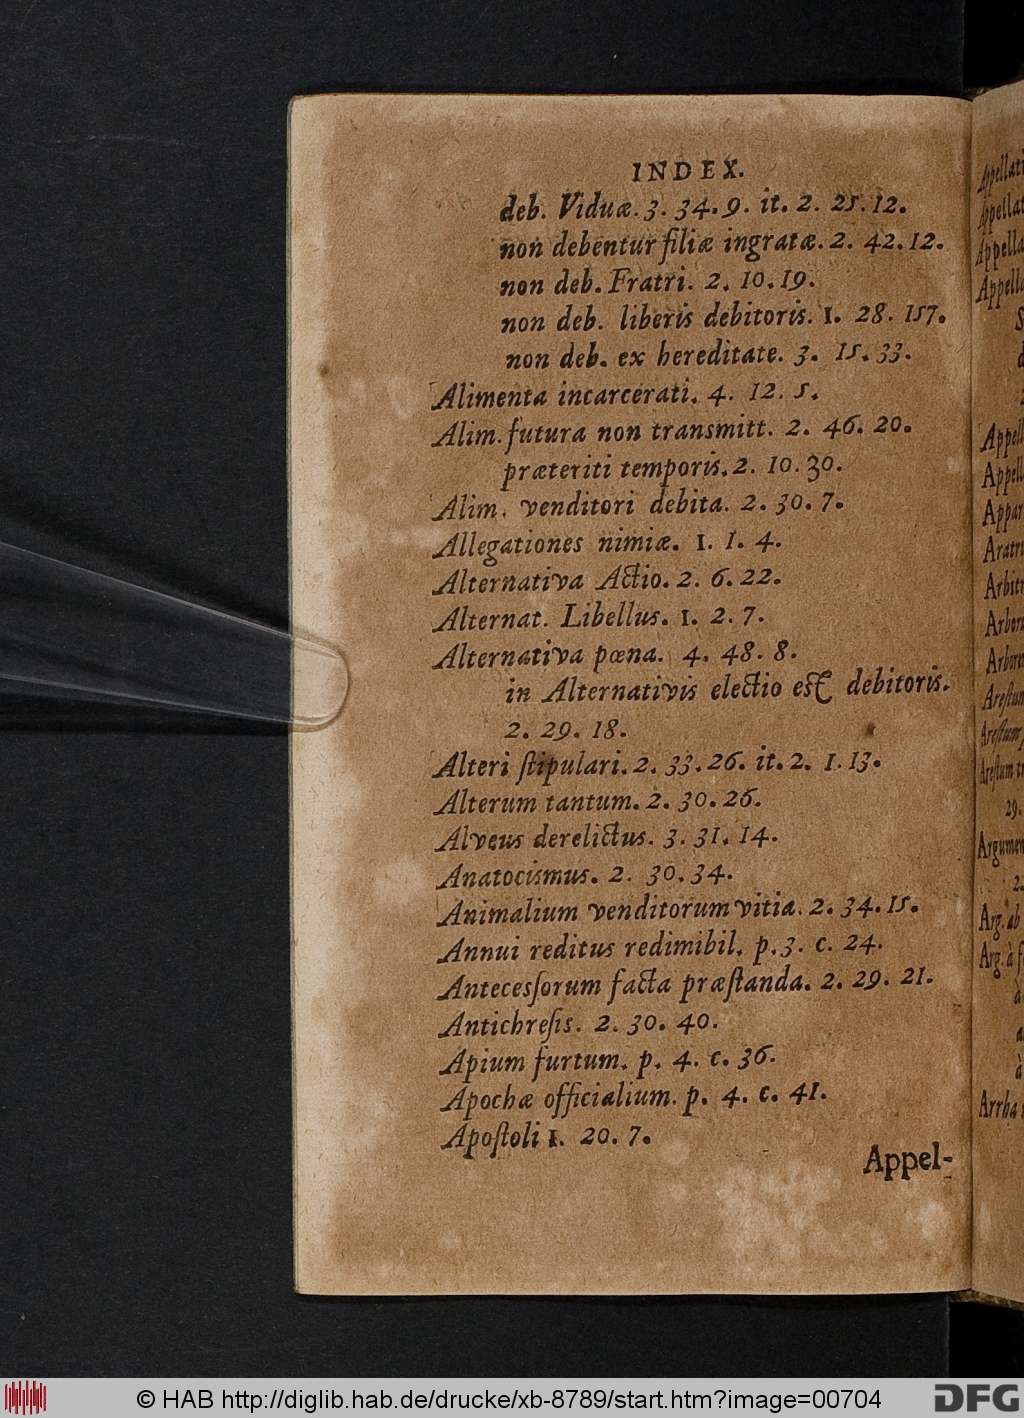 INDEX.
deb. Viduæ. 3. 34. 9. it. 2. 25. 12.
non debentur filiæ ingratæ. 2. 42. 12.
non deb. Fratri. 2. 10. 19.
non deb. liberis debitoris. 1. 28. 157.
non deb. ex hereditate. 3. 15. 33.
Alimenta incarcerati. 4. 12. 5.
Alim. futura non transmitt. 2. 46. 20.
præteriti temporis. 2. 10. 30.
Alim. venditori debita. 2. 30. 7.
Allegationes nimiæ. 1. 1. 4.
Alternativa Actio. 2. 6. 22.
Alternat. Libellus. 1. 2. 7.
Alternativa pœna. 4. 48. 8.
in Alternativis electio est debitoris.
2. 29. 18.
Alteri ſtipulari. 2. 33. 26. it. 2. 1. 13.
Alterum tantum. 2. 30. 26.
Alveus derelictus. 3. 31. 14.
Anatocismus. 2. 30. 34.
Animalium venditorum vitia. 2. 34. 15.
Annui reditus redimibil. p. 3. c. 24.
Antecesſorum facta præſtanda. 2. 29. 21.
Antichreſis. 2. 30. 40.
Apium furtum. p. 4. c. 36.
Apochæ officialium. p. 4. c. 41.
Apoſtoli 1. 20. 7.
Appel-
Appellat
Appella
Appella
Appell
Appell
Arbore
Arreſtum
29.
Argumen
Arg. ab
Arg. à
Arrha
© HAB http://diglib.hab.de/drucke/xb-8789/start.htm?image=00704
DFG